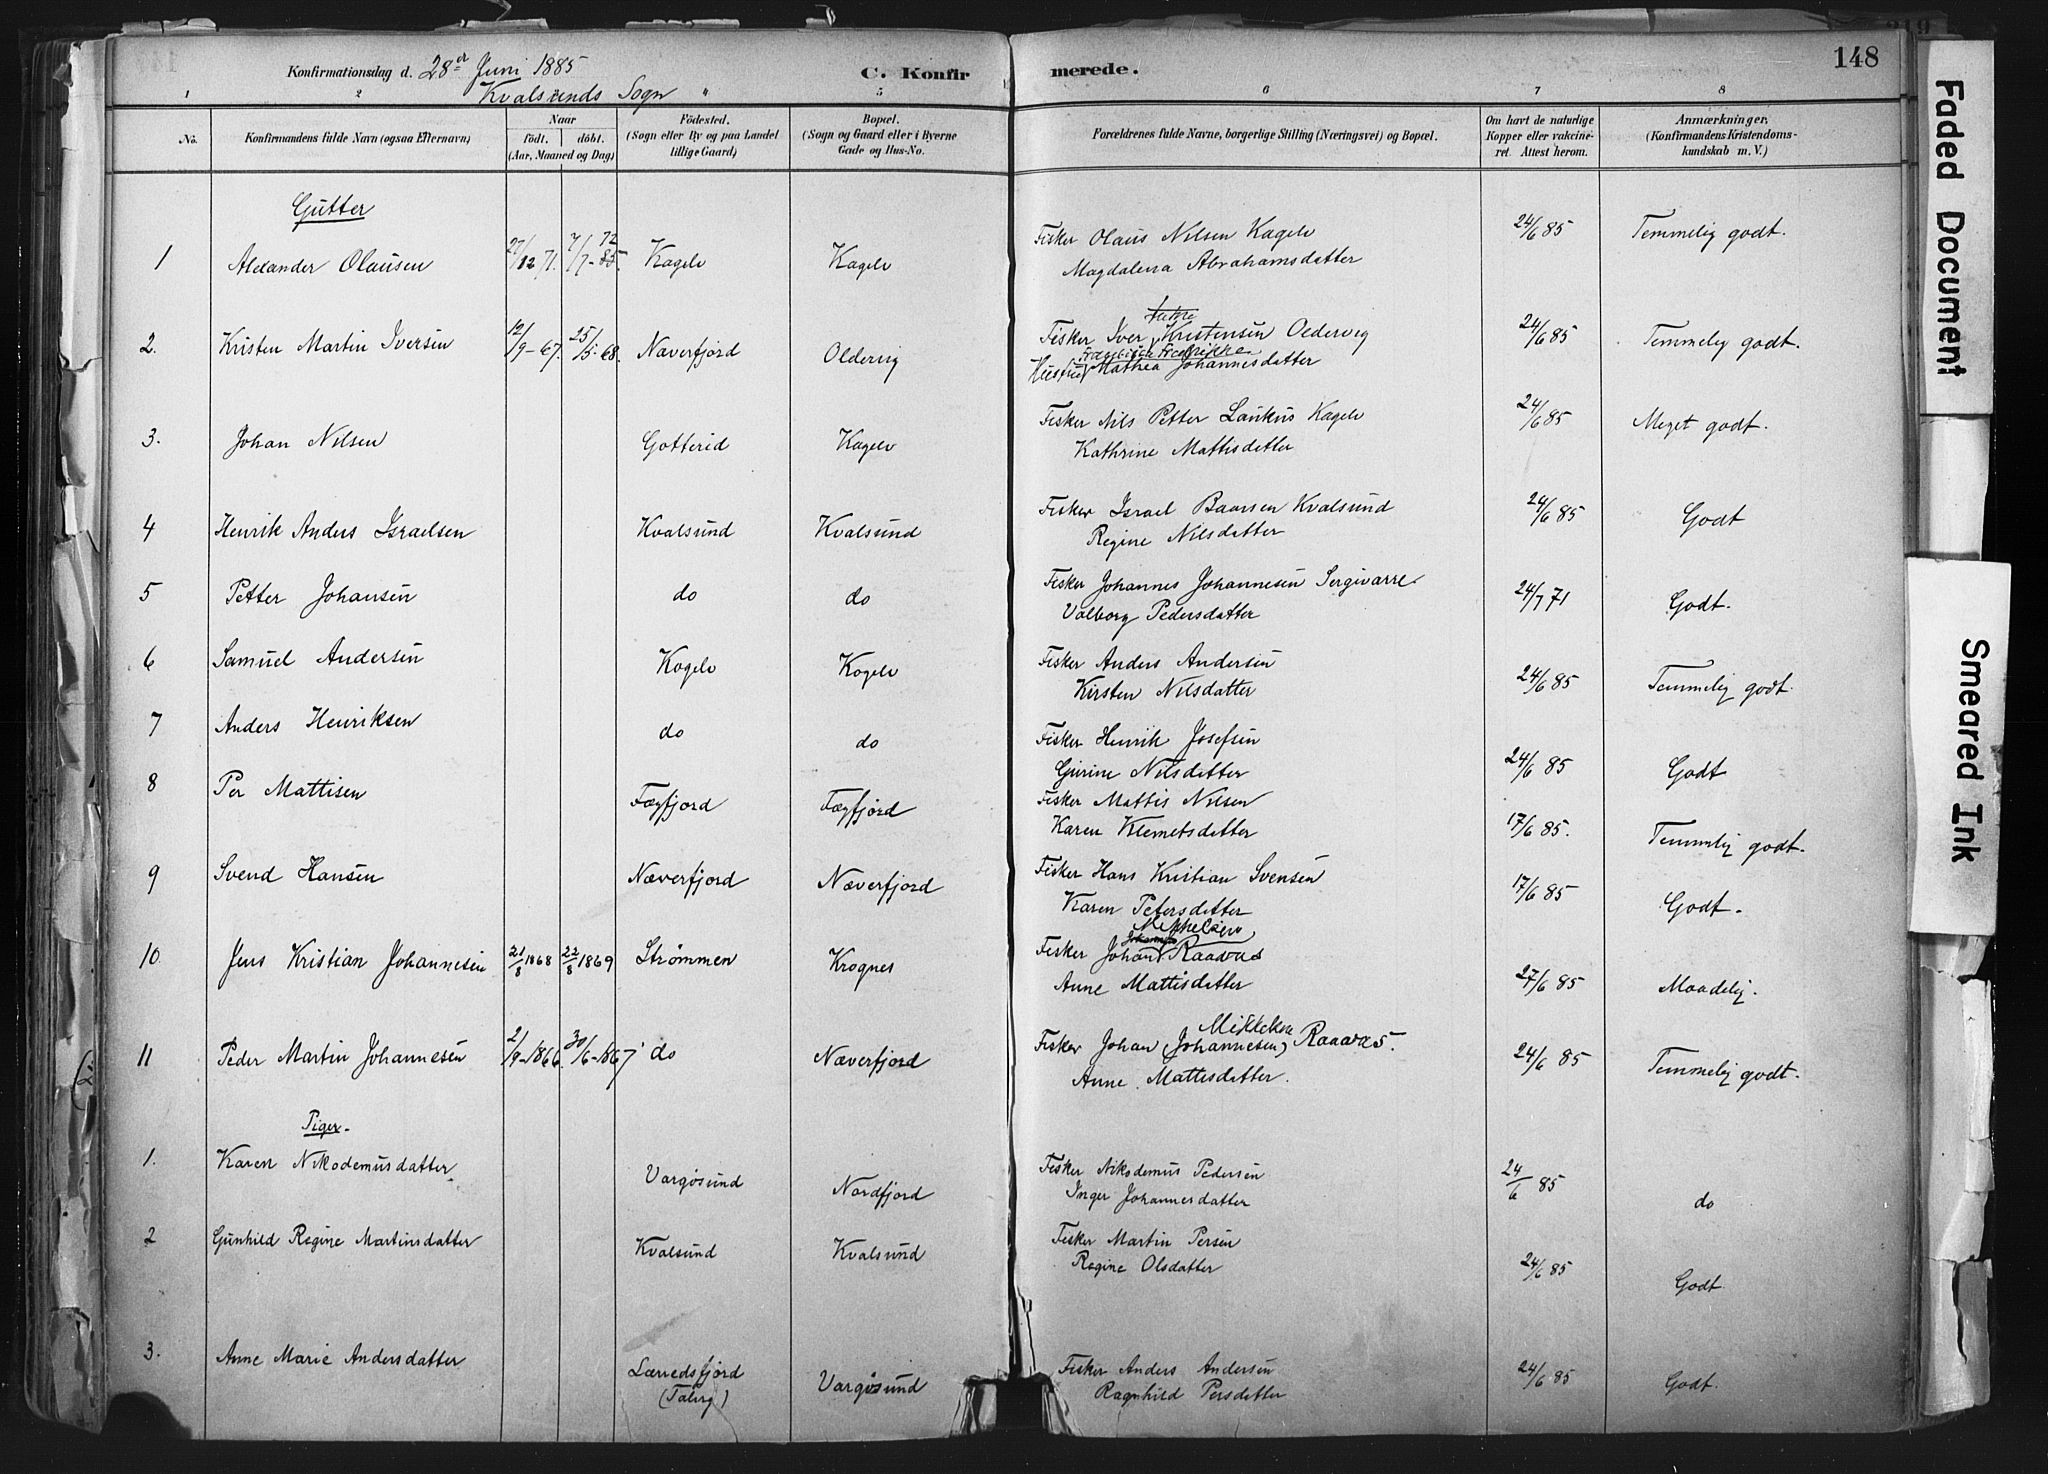 148
Konfirmationsdag d. 28er Juni 1885
C. Konfirmerede.
Kvalsunds Sogn
1 2 5 6 7 8
No. Konfirmandens fulde Navn (ogsaa Efternavn) Naar født. døbt. (Aar, Maaned og Dag) Fødested. (Sogn eller By og paa Landet tillige Gaard) Bopæl. (Sogn og Gaard eller i Byerne Gade og Hus-No. Forældrenes fulde Navne, borgerlige Stilling (Næringsvei) og Bopæl. Om havt de naturlige Kopper eller vaccineret. Attest herom. Anmærkninger. (Konfirmandens Kristendomskundskab m. V.)
Gutter
1 Alexander Olausen 27/12 71. 7/7-72 85. Kagelv Kagelv Fisker Olaus Nilsen Kagelv 24/6 85 Temmelig godt.
Magdalena Abrahamsdatter
2. Kristen Martin Iversen 12/9-67. 25/5-68. Naverfjord Oldervig Fisker Iver Kristensen Oldervig 24/6 85 Temmelig godt.
Hustru Mathea Johannesdatter
3. Johan Nilsen Gotterid Kagelv Fisker Nils Petter Laukus Kagelv 24/6 85 Meget godt.
Kathrine Mattisdatter
4 Henrik Anders Israelsen Kvalsund Kvalsund Fisker Israel Baarsen Kvalsund 24/6 85 Godt
Regine Nilsdatter
5 Petter Johansen do do Fisker Johannes Johannesen Sergivarre 24/7 71 Godt.
Valborg Pedersdatter
6 Samuel Andersen Kogelv Kogelv Fisker Anders Andersen 24/6 85 Temmelig godt.
Kirsten Nilsdatter
7 Anders Henriksen do do Fisker Henrik Josefsen 24/6 85 Godt
Gurine Nilsdatter
8 Per Mattisen Fægfjord Fægfjord Fisker Mattis Nilsen 17/6 85. Temmelig godt.
Karen Klemetsdatter
9 Svend Hansen Næverfjord Næverfjord Fisker Hans Kristian Svensen 17/6 85 Godt.
Karen Petersdatter
Mikkelsen
10 Jens Kristian Johannesen 21/8 1868 22/8 1869 Strømmen Krognes Fisker Johan Raavas 27/6 85 Maadelig.
Anne Mattisdatter
Mikkelsen
11 Peder Martin Johannesen 2/9-1866. 30/6-1867 do Næverfjord Fisker Johan (Johannesen) Raavas. 24/6 85 Temmelig godt.
Anne Mattisdatter.
Piger.
1. Karen Nikodemusdatter Vargøsund Nordfjord Fisker Nikodemus Pedersen 24/6 85 do
Inger Johannesdatter
2 Gunhild Regine Martinsdatter Kvalsund Kvalsund Fisker Martin Persen 24/6 85 Godt
Regine Olsdatter
3. Anne Marie Andersdatter Lærredsfjord Vargøsund Fisker Anders Andersen 24/6 85 Godt.
Ragnhild Persdatter
Faded Document
Smeared Ink